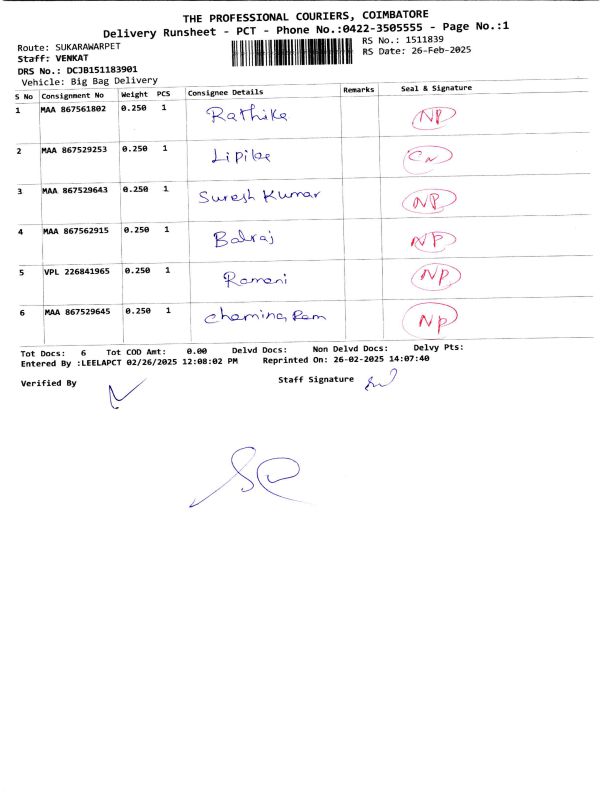 THE PROFESSIONAL COURIERS, COIMBATORE
Delivery Runsheet - PCT - Phone No.:0422-3505555 - Page No.:1
Route: SUKARAWARPET
RS No.: 1511839
Staff: VENKAT
RS Date: 26-Feb-2025
DRS No.: DCJB151183901
Vehicle: Big Bag Delivery
S No Consignment No Weight PCS Consignee Details Remarks Seal & Signature
1 MAA 867561802 0.250 1 Rathika NP
2 MAA 867529253 0.250 1 CN
3 MAA 867529643 0.250 1 Suresh Kumar NP
4 MAA 867562915 0.250 1 Balraj NP
5 VPL 226841965 0.250 1 Ramani NP
6 MAA 867529645 0.250 1 Ram NP
Tot Docs: 6 Tot COD Amt: 0.00 Delvd Docs: Non Delvd Docs: Delvy Pts:
Entered By :LEELAPCT 02/26/2025 12:08:02 PM Reprinted On: 26-02-2025 14:07:40
Verified By Staff Signature